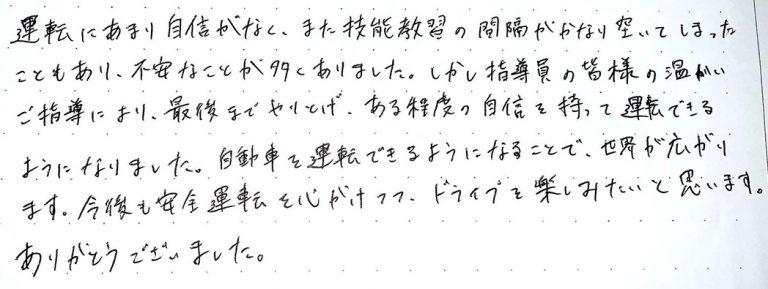 運転にあまり自信がなく、また技能教習の間隔がかなり空いてしまった
こともあり、不安なことが多くありました。しかし指導員の皆様の温かい
ご指導により、最後までやりとげ、ある程度の自信を持って運転できる
ようになりました。自動車を運転できるようになることで、世界が広がり
ます。今後も安全運転を心がけつつ、ドライブを楽しみたいと思います。
ありがとうございました。